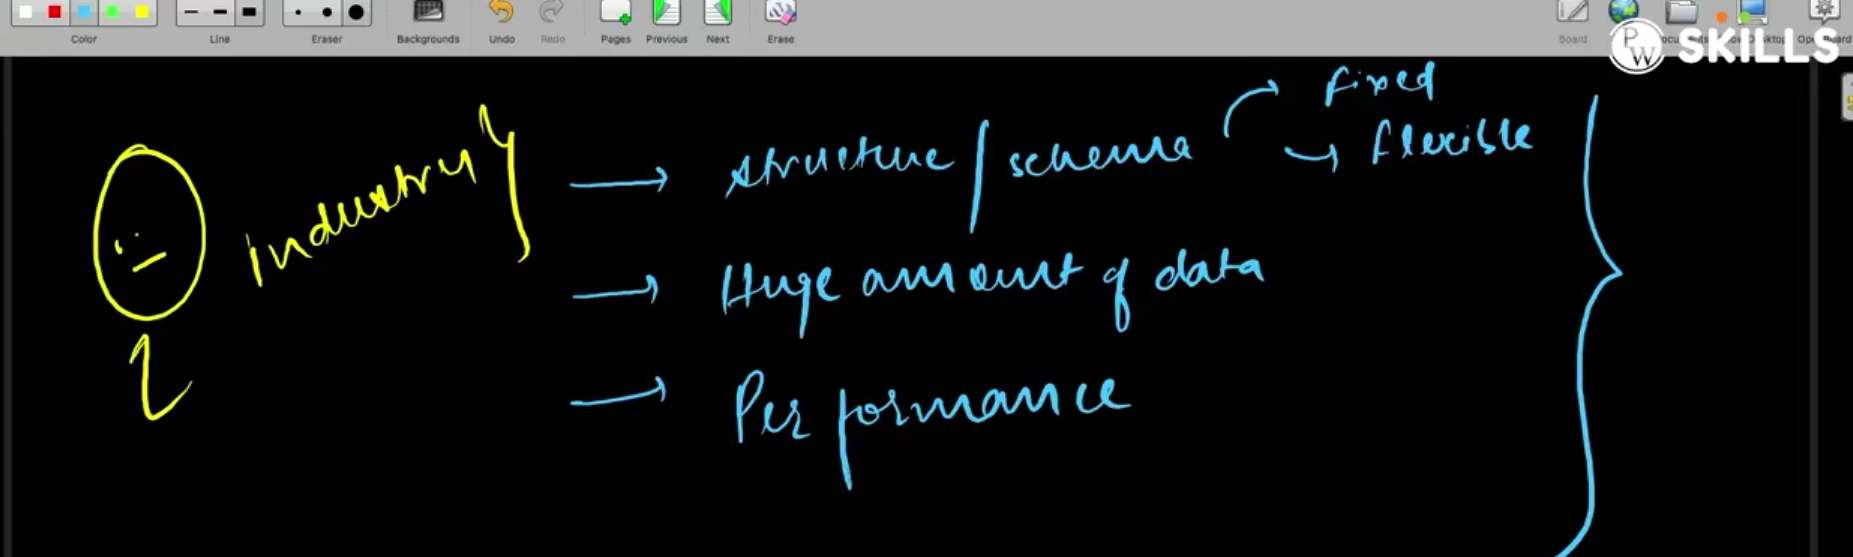 Color
Line
Eraser
Backgrounds
Undo
Redo
Pages
Previous
Next
Erase
Board
PW SKILLS
industry
structure / schema
fixed
flexible
Huge amount of data
Performance